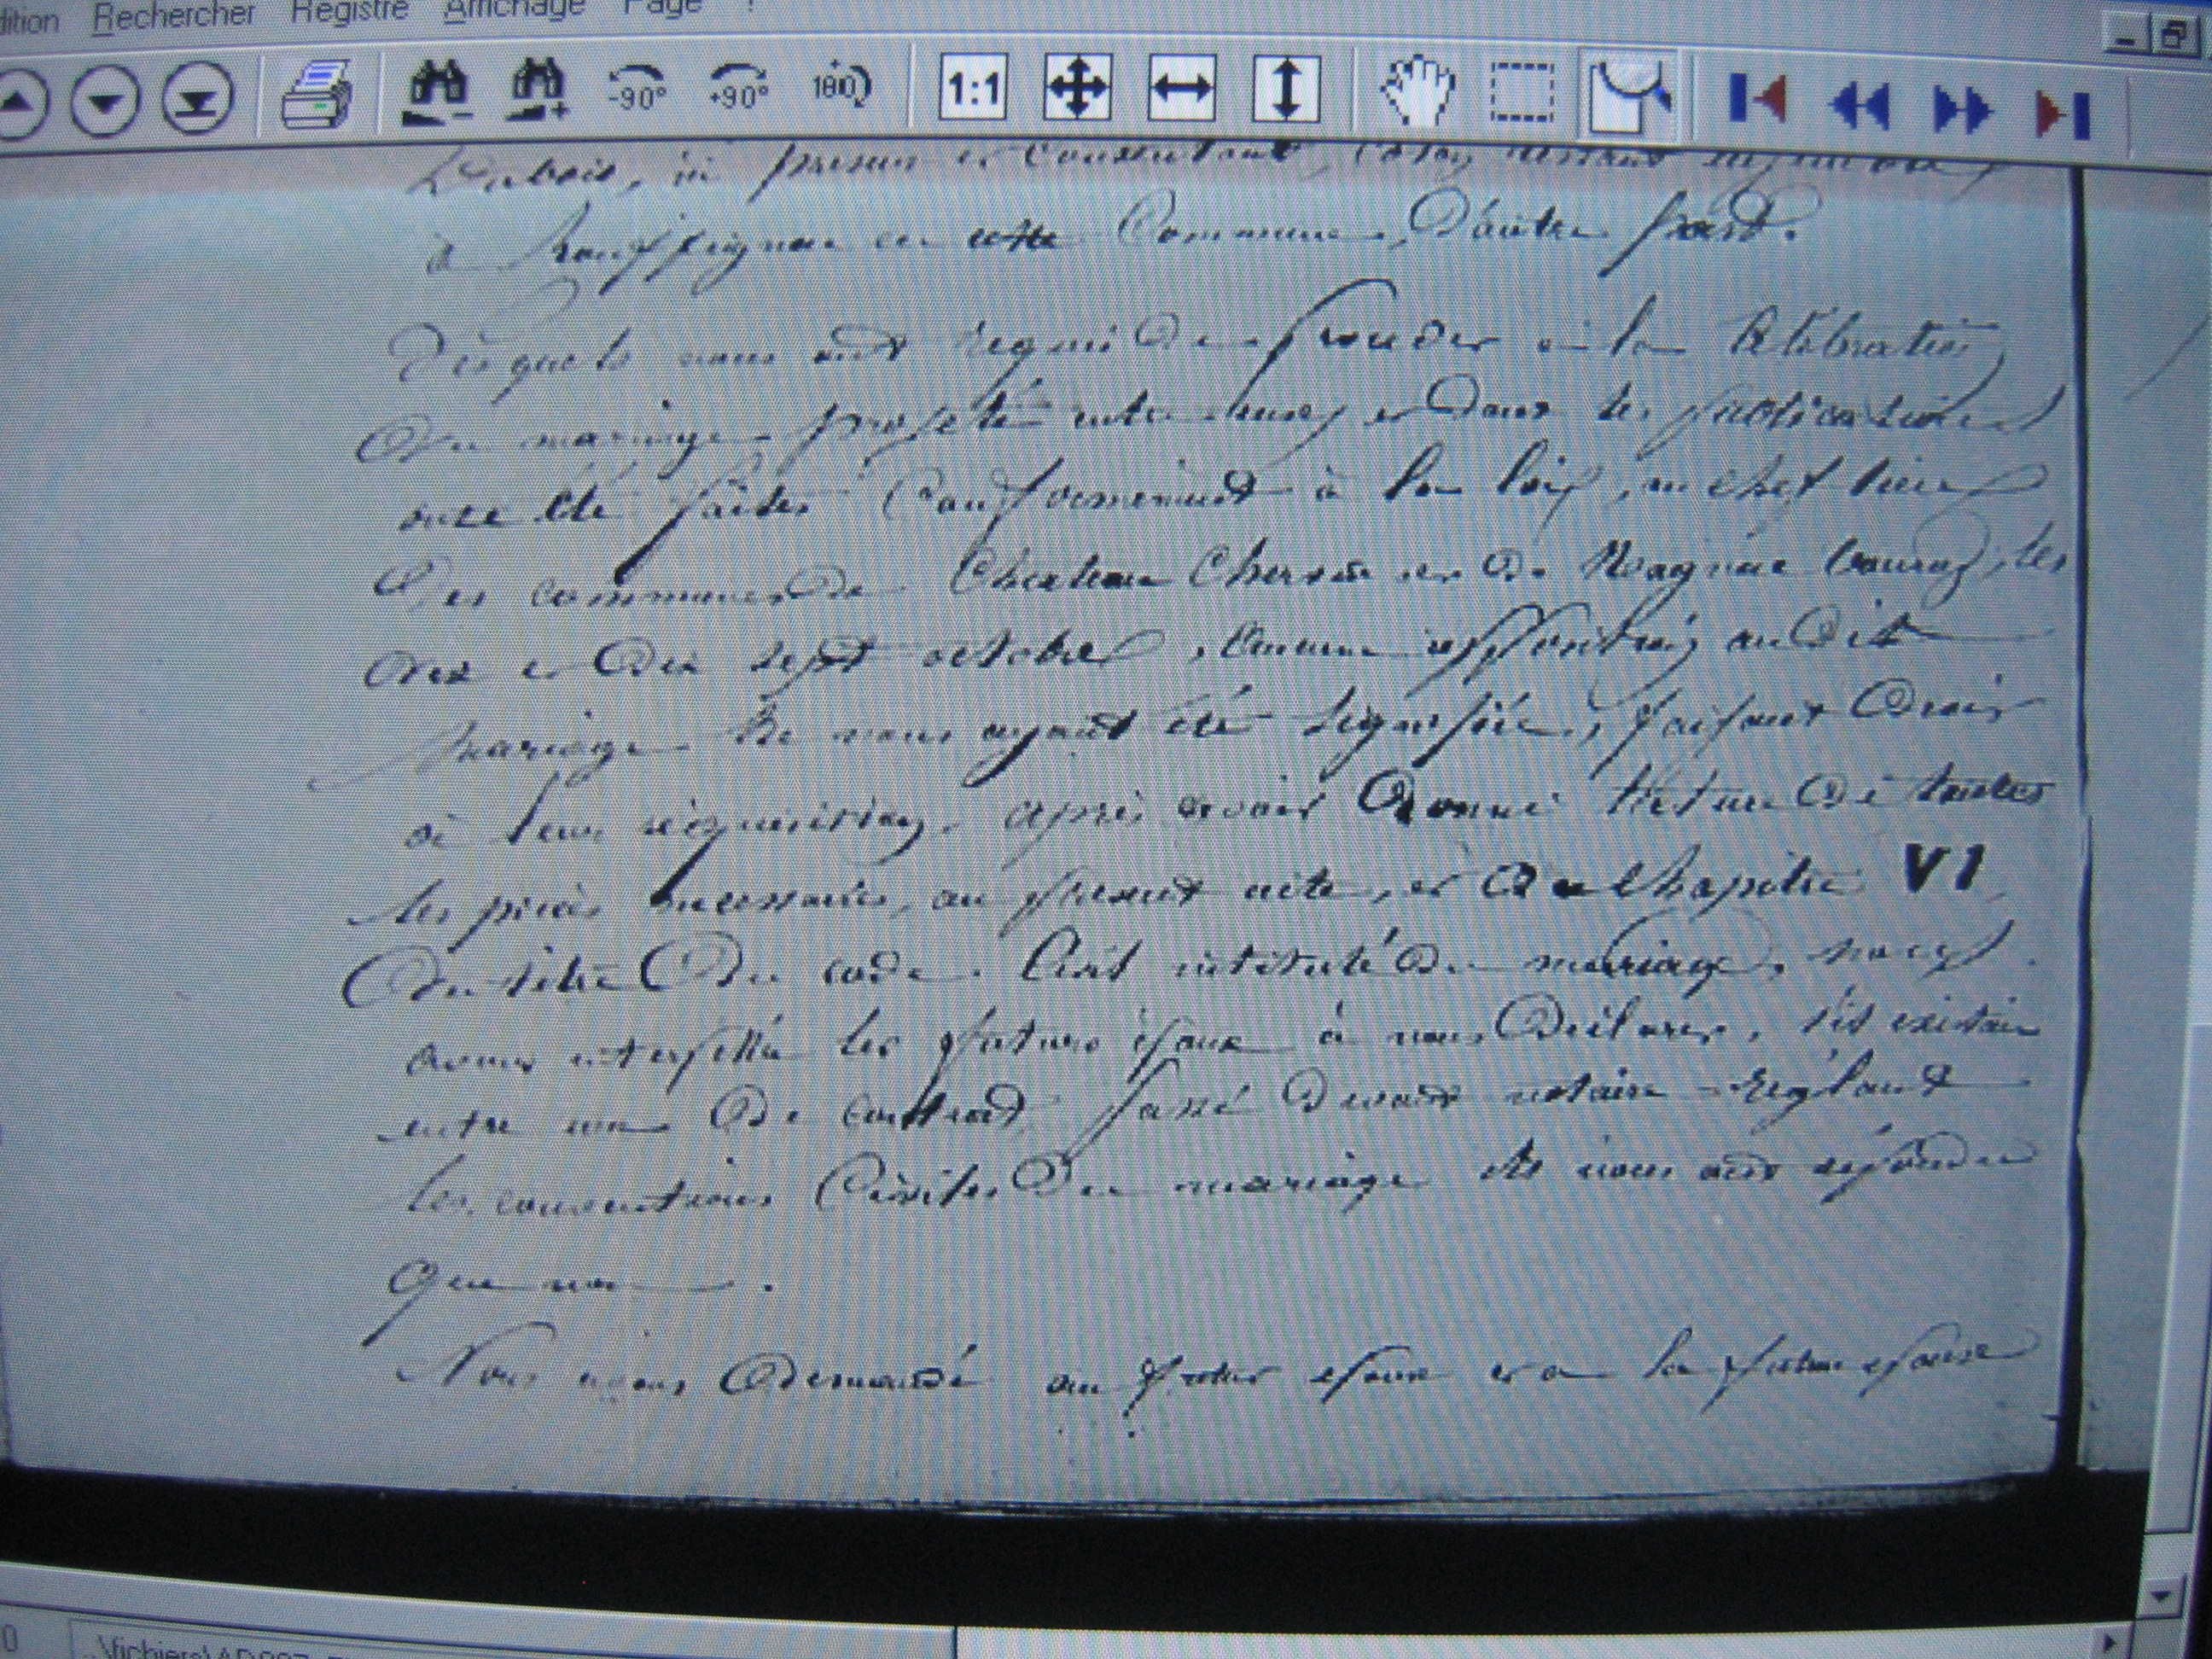 dition Rechercher Registre Affichage Page ?
-90° +90° 180 1:1
Dubois, ici présent et consentant,
à en cette Commune, D'autre part.
Desquels nous ont requis de proceder à la Célébration
Du mariage projeté entre eux, et dont les publications
ont été faites Conformement à la loi, au chef lieu
Des communes de Chateau Chervix et de Magnac bourg, les
dix et dix sept octobre, aucune opposition audit
mariage ne nous ayant été signifiée, faisant droit
à leur réquisition, après avoir donné lecture de toutes
les pièces necessaires, au présent acte, et du Chapitre VI
Du titre Du code Civil intitulé du mariage, nous
avons interpellé les futurs époux à nous déclarer, s'il existait
entre eux de contrat passé devant notaire réglant
les conventions Civiles du mariage ils nous ont répondu
que non.
Nous avons demandé au futur epoux et a la future epouse
0 ..\fichiers\AD087